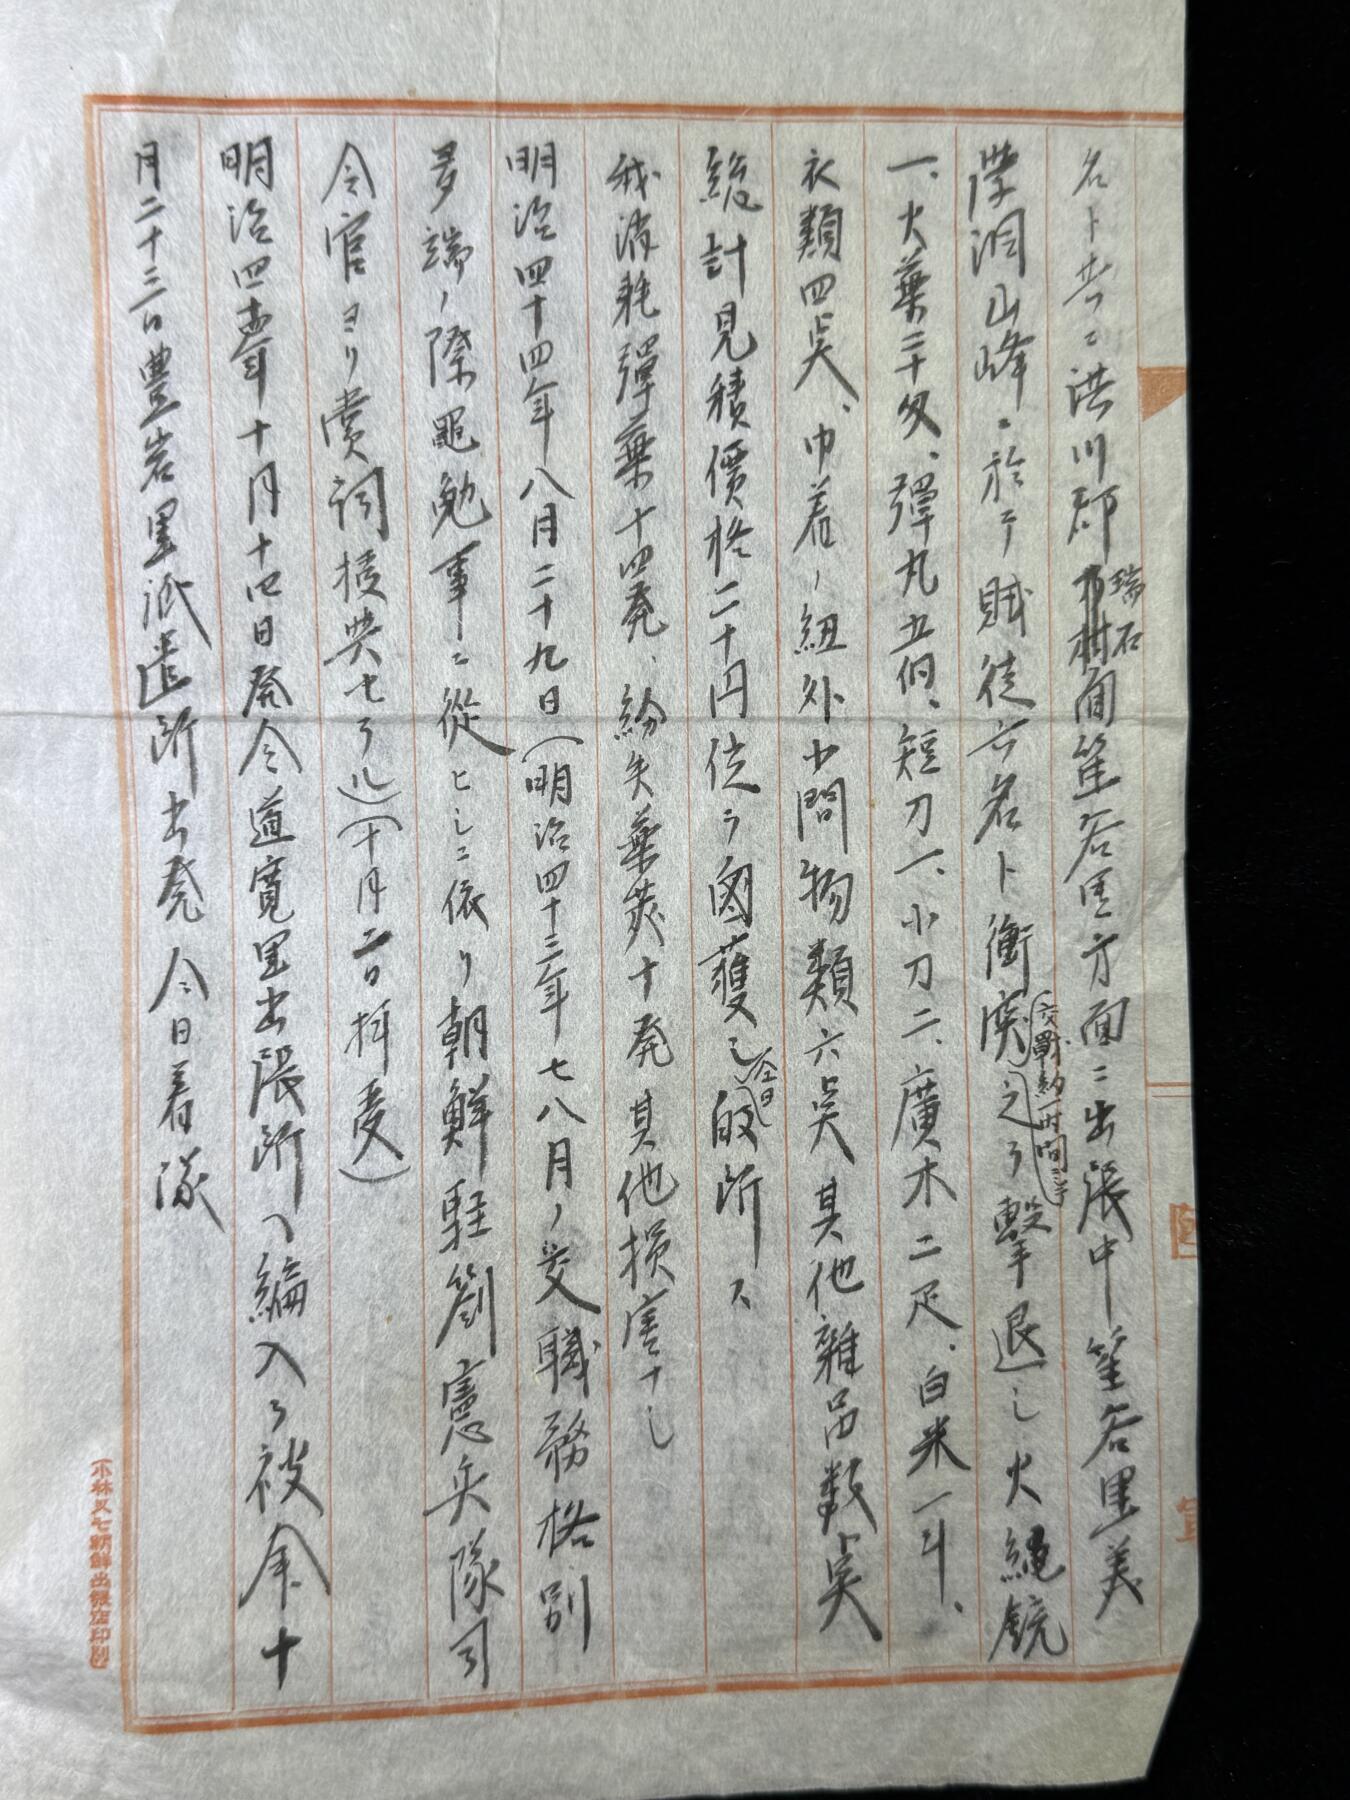 名ト共ニ洪川郡瑞石面笙谷里方面ニ出張中笙谷里美
學洞山峰ニ於テ賊徒六名ト衝突(交戰約一時间ニシテ)之ヲ擊退シ火繩銃
一、火薬三十匁、彈丸五個、短刀一、小刀二、廣木二疋、白米一斗、
衣類四点、巾着ノ紐外小間物類六点其他雜品数点
総計見積價格二十円位ヲ鹵獲シ(仝日)皈所ス
我消耗彈薬十四発、紛失薬莢十発其他損害ナシ
明治四十四年八月二十九日(明治四十三年七八月ノ交職務格別
多端ノ際黽勉事ニ從ヒシニ依リ朝鮮駐劄憲兵隊司
令官ヨリ賞詞授與セラル)(十月二日拝受)
明治四四年十月十四日発令道寬里出張所ヘ編入ヲ被命十
月二十三日豊岩里派遣所出発今日着隊
(小林又七朝鮮出張店印刷)